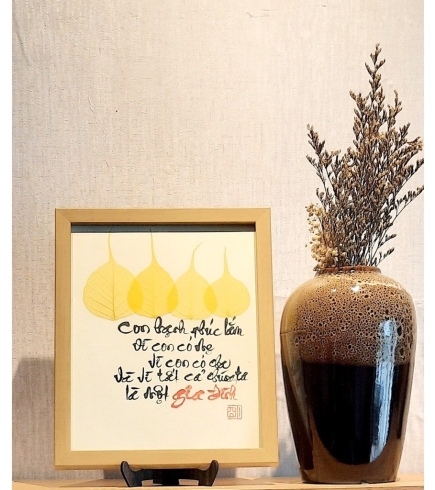 con hạnh phúc lắm
vì con có mẹ
vì con có cha
và vì tất cả chúng ta
là một gia đình